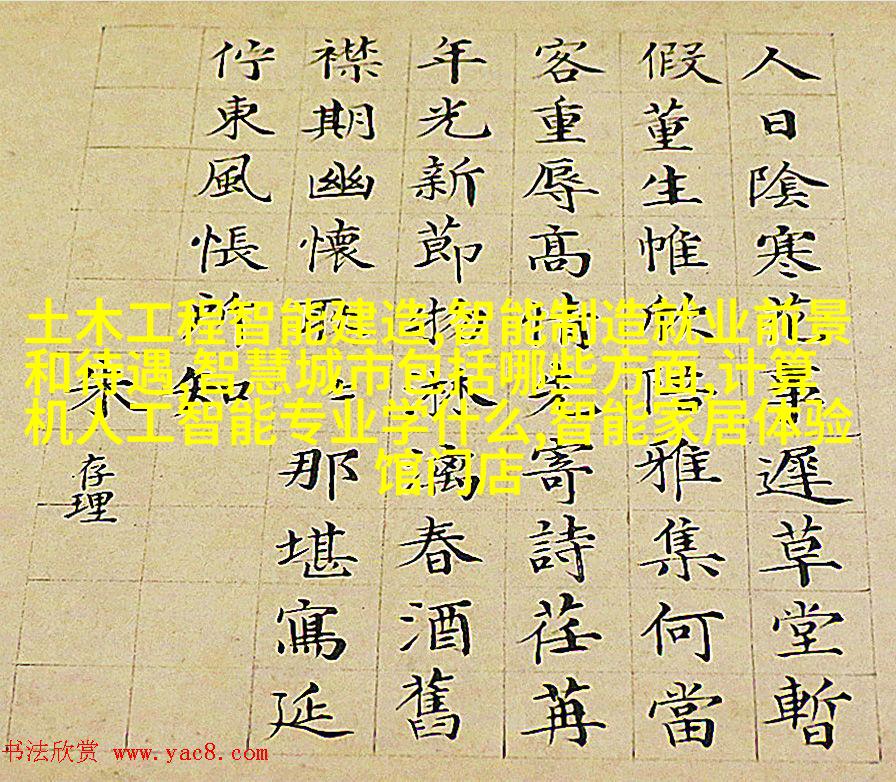 人日陰寒花遲草堂暫
假董生帷欣陪雅集何當
客重辱高情先寄詩荏苒
年光新節物淋漓春酒舊
襟期幽懷耿耿那堪寫延
佇東風悵所知
朱
存理
土木工程智能建造,智能制造就业前景
和待遇,智慧城市包括哪些方面,计算
机人工智能专业学什么,智能家居体验
馆门店
书法欣赏 www.yac8.com